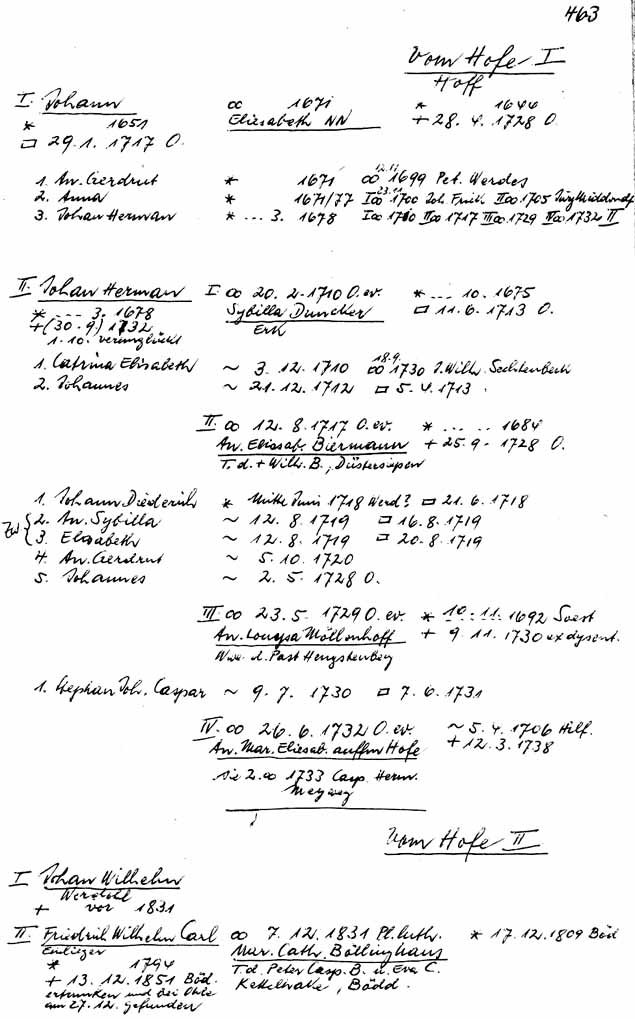 463
Vom Hofe I
Hoff
I. Johann ∞ 1671 * 1644
* 1651 Eliesabeth NN + 28. 4. 1728 O.
□ 29. 1. 1717 O.
12.11.
1. An. Gerdrut * 1671 ∞ 1699 Pet. Werdes
23.11
2. Anna * 1671/77 I∞ 1700 Joh. II∞ 1705
3. Johan Herman * ... 3. 1678 I∞ 1710 II∞ 1717 III∞ 1729 IV∞ 1732 II
II. Johan Herman I. ∞ 20. 2. 1710 O. ev. * ... 10. 1675
* --- 3. 1678 Sybilla Duncker □ 11. 6. 1713 O.
+ (30. 9.) 1732
1. 10. verunglückt
18.9.
1. Catrina Elisabeth ~ 3. 12. 1710 ∞ 1730 J. Wilh. Sechtenbeck
2. Johannes ~ 21. 12. 1712 □ 5. 4. 1713.
II. ∞ 12. 8. 1717 O. ev. * ... .. 1684
An. Eliesab. Biermann + 25. 9. 1728 O.
T. d. + Wilh. B., Düstersiepen
1. Johann Diederich * Mitte Juni 1718 Werd? □ 21. 6. 1718
Zw { 2. An. Sybilla ~ 12. 8. 1719 □ 16. 8. 1719
3. Elsabeth ~ 12. 8. 1719 □ 20. 8. 1719
4. An. Gerdrut ~ 5. 10. 1720
5. Johannes ~ 2. 5. 1728 O.
III ∞ 23. 5. 1729 O. ev. * 10. 11. 1692 Soest
An. Louysa Möllenhoff + 9. 11. 1730 ex dysent.
Wwe. d. Past Hengstenberg
1. Stephan Joh. Caspar ~ 9. 7. 1730 □ 7. 6. 1731
IV. ∞ 26. 6. 1732 O. ev. ~ 5. 4. 1706 Hilf.
An. Mar. Eliesab. auffm Hofe + 12. 3. 1738
sie 2. ∞ 1733 Casp. Herm.
Meyweg
Vom Hofe II
I Johan Wilhelm
Werdohl
+ vor 1831
II. Friedrich Wilhelm Carl ∞ 7. 12. 1831 Pl. luth. * 17. 12. 1809 Böd
Einlieger Mar. Cath. Böllinghaus
* 1794 T. d. Peter Casp. B. u. Eva C.
+ 13. 12. 1851 Böd. , Bödd.
ertrunken und bei Ohle
am 27. 12. gefunden